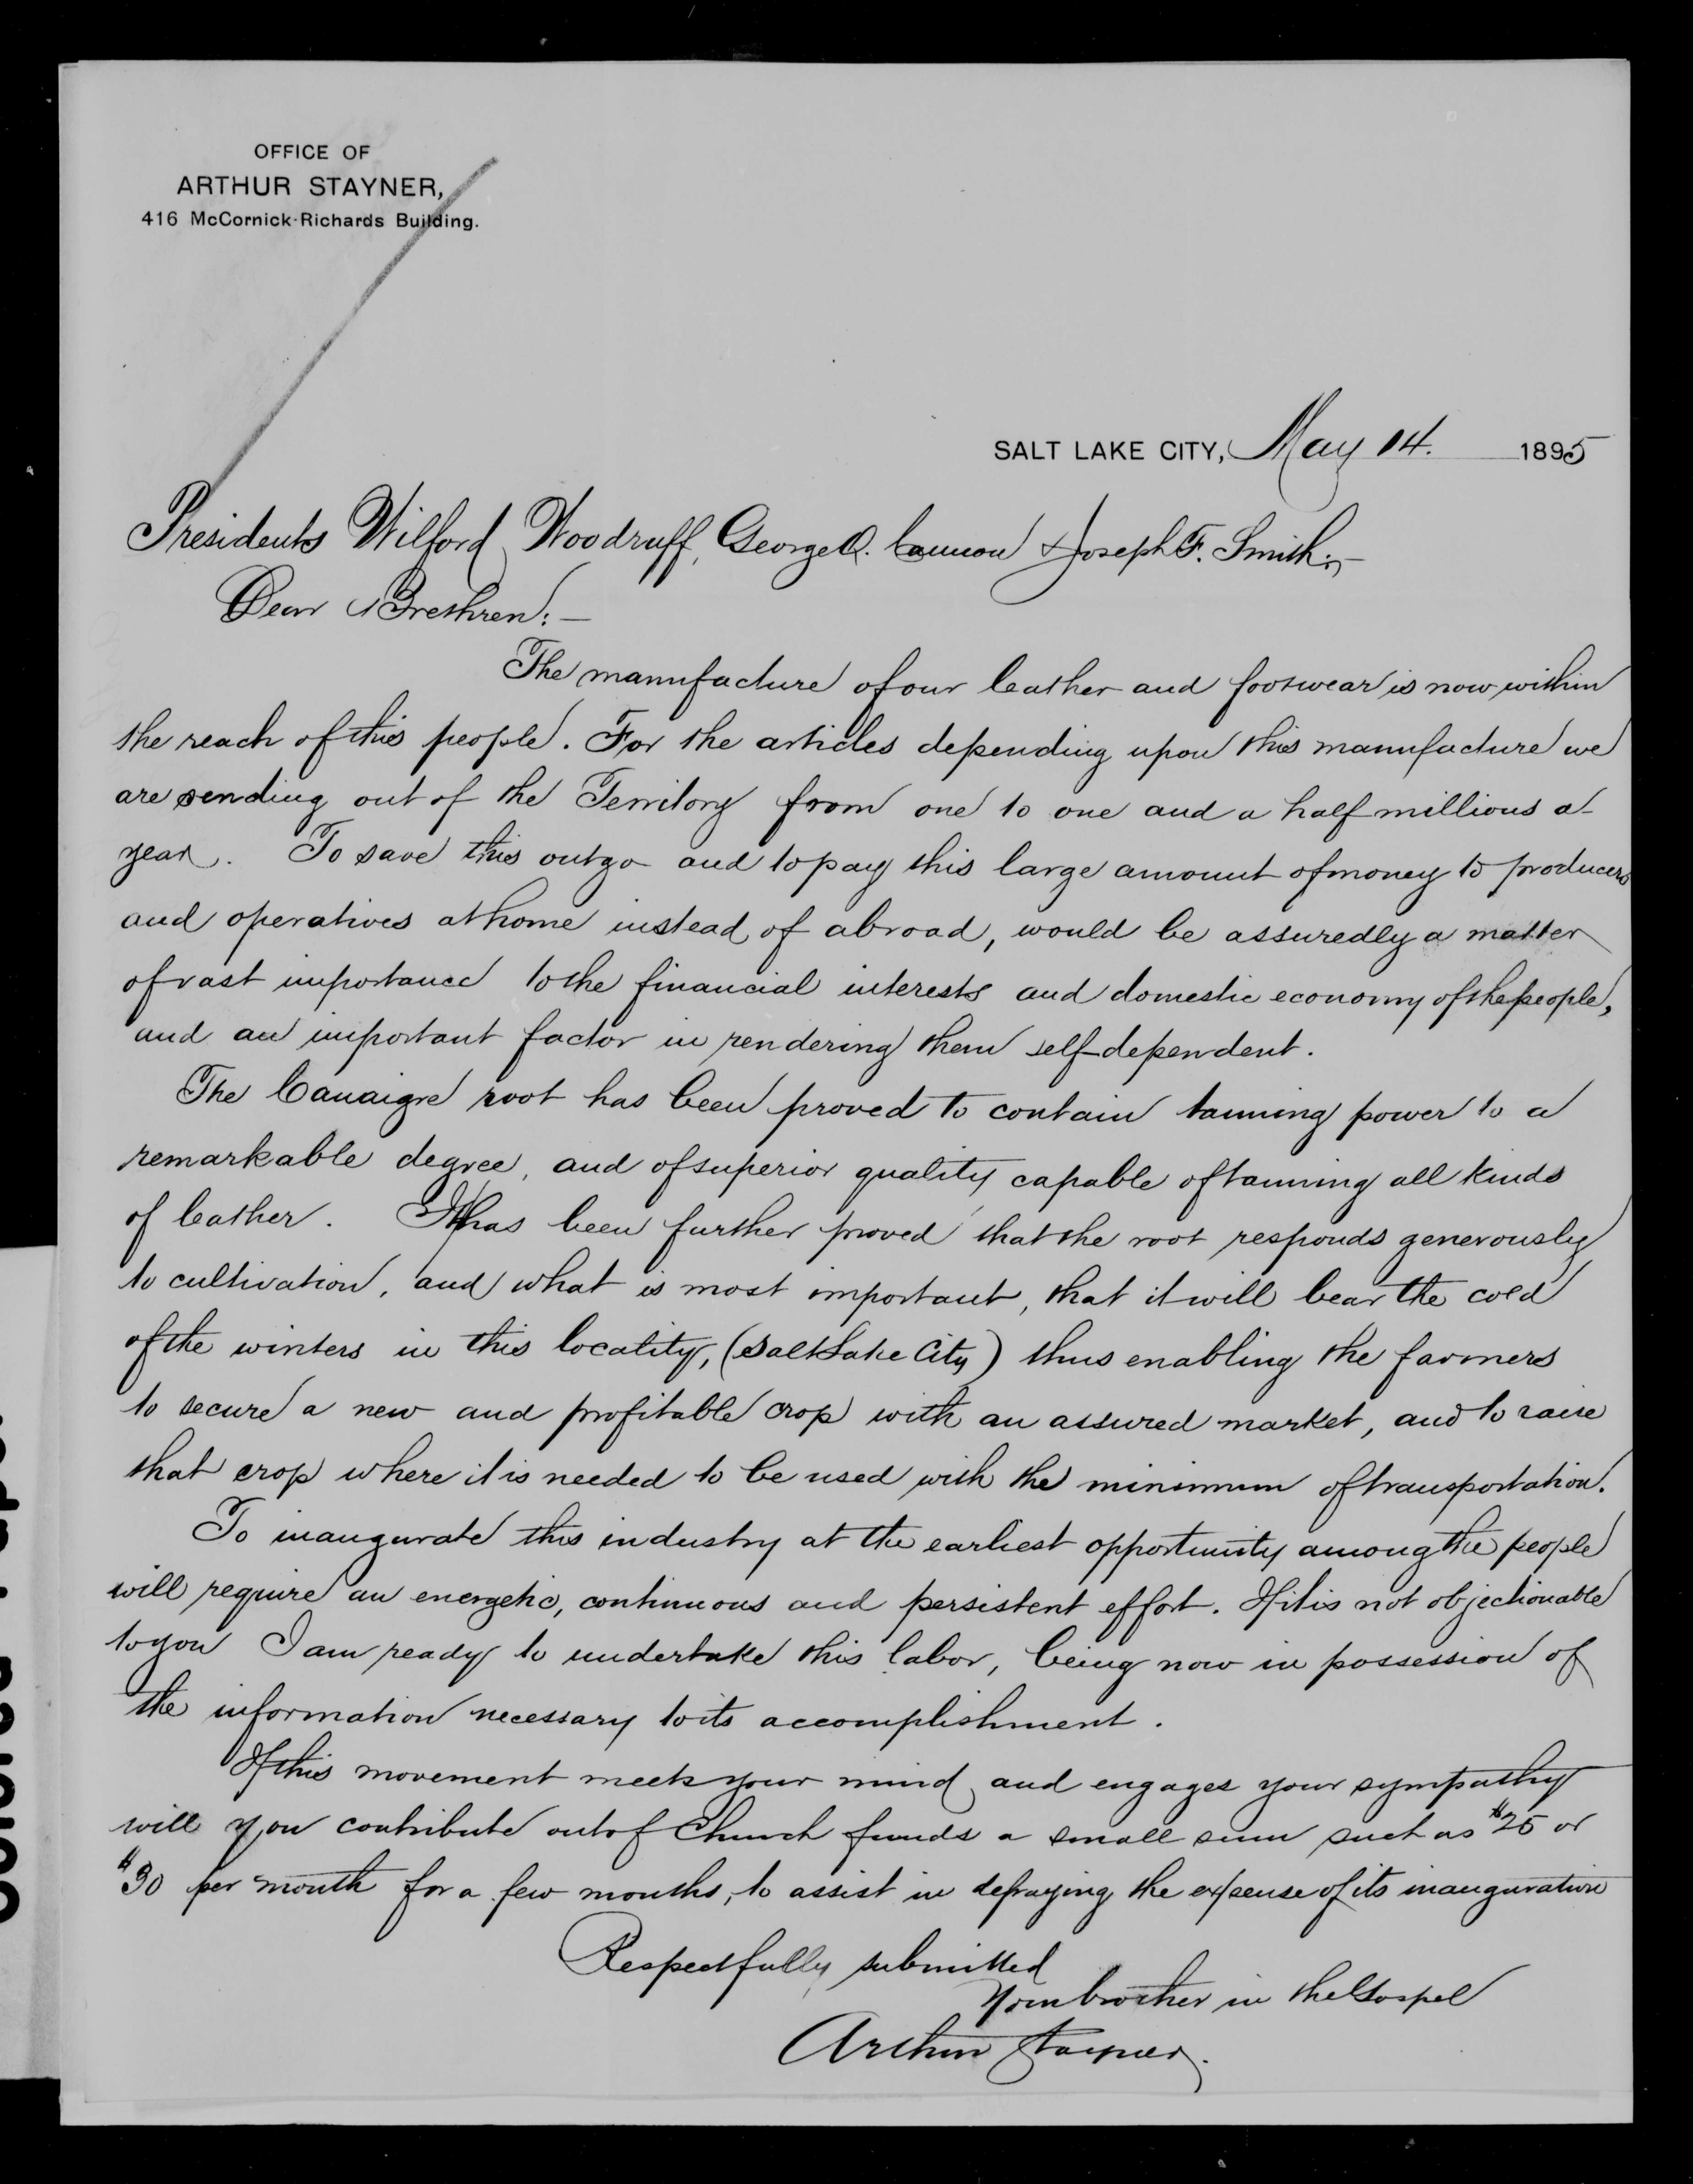 OFFICE OF
ARTHUR STAYNER,
416 McCornick-Richards Building.
SALT LAKE CITY, May 14. 1895
Presidents Wilford Woodruff, George Q. Cannon & Joseph F. Smith:—
Dear Brethren:—
The manufacture of our leather and footwear is now within
the reach of this people. For the articles depending upon this manufacture we
are sending out of the Territory from one to one and a half millions a
year. To save this outgo and to pay this large amount of money to producers
and operatives at home instead of abroad, would be assuredly a matter
of vast importance to the financial interests and domestic economy of the people,
and an important factor in rendering them self-dependent.
The Canaigre root has been proved to contain tanning power to a
remarkable degree, and of superior quality capable of tanning all kinds
of leather. It has been further proved that the root responds generously
to cultivation, and what is most important, that it will bear the cold
of the winters in this locality, (Salt Lake City) thus enabling the farmers
to secure a new and profitable crop with an assured market, and to raise
that crop where it is needed to be used with the minimum of transportation.
To inaugurate this industry at the earliest opportunity among the people
will require an energetic, continuous and persistent effort. If it is not objectionable
to you I am ready to undertake this labor, being now in possession of
the information necessary to its accomplishment.
If this movement meets your mind and engages your sympathy
will you contribute out of Church funds a small sum such as $25 or
$30 per month for a few months, to assist in defraying the expense of its inauguration
Respectfully submitted
Your brother in the Gospel
Arthur Stayner.